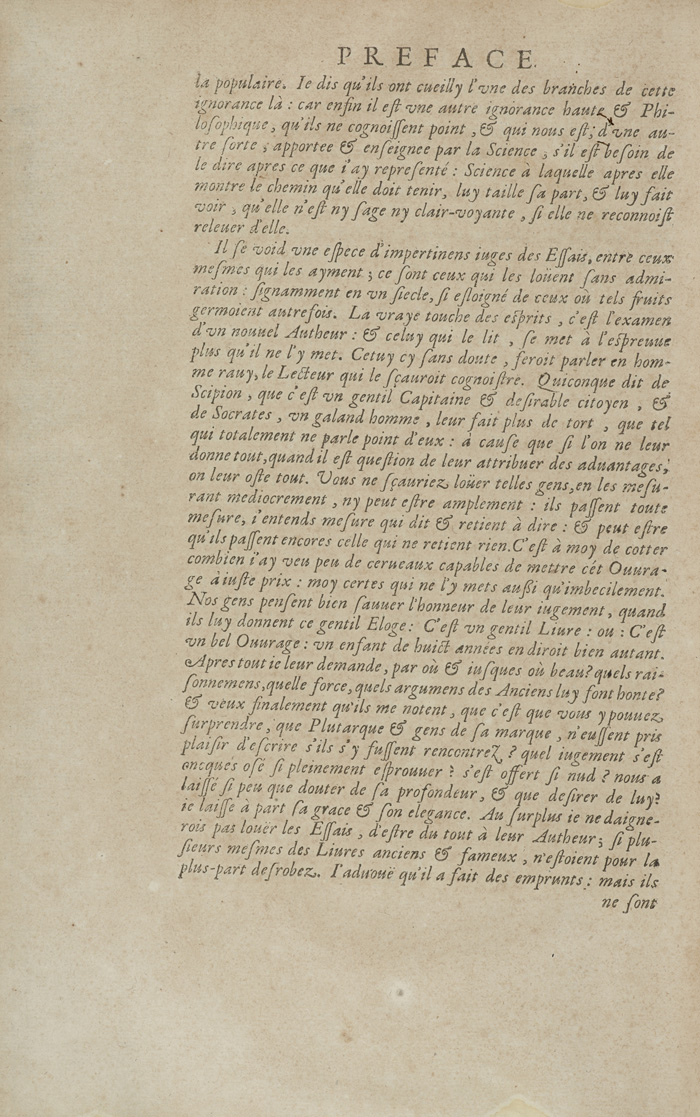 PREFACE.
la populaire. Ie dis qu'ils ont cueilly l'vne des branches de cette
ignorance là : car enfin il eſt vne autre ignorance haute & Phi-
loſophique, qu'ils ne cognoiſſent point, & qui nous eſt; d'vne au-
tre ſorte, apportee & enſeignee par la Science, s'il eſt beſoin de
le dire apres ce que i'ay repreſenté : Science à laquelle apres elle
montre le chemin qu'elle doit tenir, luy taille ſa part, & luy fait
voir, qu'elle n'eſt ny ſage ny clair-voyante, ſi elle ne reconnoiſt
releuer d'elle.
Il ſe void vne eſpece d'impertinens iuges des Eſſais, entre ceux
meſmes qui les ayment; ce ſont ceux qui les loüent ſans admi-
ration : ſignamment en vn ſiecle, ſi eſloigné de ceux où tels fruits
germoient autrefois. La vraye touche des eſprits, c'eſt l'examen
d'vn nouuel Autheur : & celuy qui le lit, ſe met à l'eſpreuue
plus qu'il ne l'y met. Cetuy cy ſans doute, feroit parler en hom-
me rauy, le Lecteur qui le ſçauroit cognoiſtre. Quiconque dit de
Scipion, que c'eſt vn gentil Capitaine & deſirable citoyen, &
de Socrates, vn galand homme, leur fait plus de tort, que tel
qui totalement ne parle point d'eux : à cauſe que ſi l'on ne leur
donne tout, quand il eſt queſtion de leur attribuer des aduantages,
on leur oſte tout. Vous ne ſçauriez loüer telles gens, en les meſu-
rant mediocrement, ny peut eſtre amplement : ils paſſent toute
meſure, i'entends meſure qui dit & retient à dire : & peut eſtre
qu'ils paſſent encores celle qui ne retient rien. C'eſt à moy de cotter
combien i'ay veu peu de cerueaux capables de mettre cét Ouura-
ge à iuſte prix : moy certes qui ne l'y mets auſſi qu'imbecilement.
Nos gens penſent bien ſauuer l'honneur de leur iugement, quand
ils luy donnent ce gentil Eloge : C'eſt vn gentil Liure : ou : C'eſt
vn bel Ouurage : vn enfant de huict années en diroit bien autant.
Apres tout ie leur demande, par où & iuſques où beau? quels rai-
ſonnemens, quelle force, quels argumens des Anciens luy font honte?
& veux finalement qu'ils me notent, que c'eſt que vous y pouuez
ſurprendre, que Plutarque & gens de ſa marque, n'euſſent pris
plaiſir d'eſcrire s'ils s'y fuſſent rencontrez? quel iugement s'eſt
oncques oſé ſi pleinement eſprouuer? s'eſt offert ſi nud? nous a
laiſſé ſi peu que douter de ſa profondeur, & que deſirer de luy?
ie laiſſe à part ſa grace & ſon elegance. Au ſurplus ie ne daigne-
rois pas loüer les Eſſais, d'eſtre du tout à leur Autheur; ſi plu-
ſieurs meſmes des Liures anciens & fameux, n'eſtoient pour la
plus-part deſrobez. I'aduoüe qu'il a fait des emprunts : mais ils
ne ſont